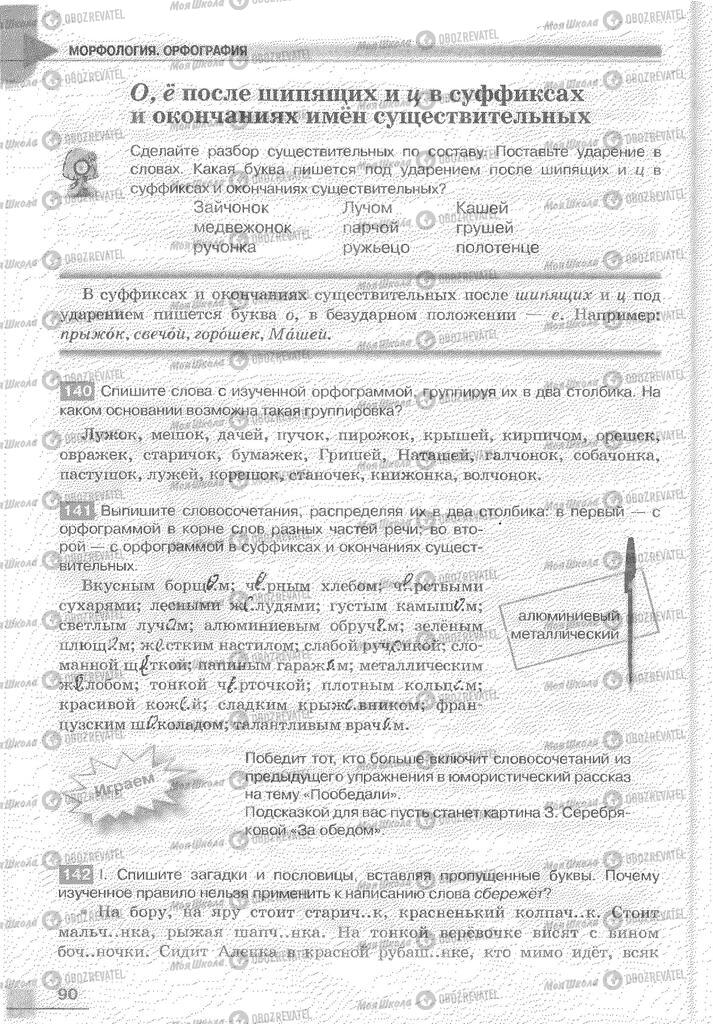 МОРФОЛОГИЯ. ОРФОГРАФИЯ
О, ё после шипящих и ц в суффиксах
и окончаниях имён существительных
Сделайте разбор существительных по составу. Поставьте ударение в
словах. Какая буква пишется под ударением после шипящих и ц в
суффиксах и окончаниях существительных?
Зайчонок Лучом Кашей
медвежонок парчой грушей
ручонка ружьецо полотенце
В суффиксах и окончаниях существительных после шипящих и ц под
ударением пишется буква о, в безударном положении — е. Например:
прыжо́к, свечо́й, горо́шек, Ма́шей.
140 Спишите слова с изученной орфограммой, группируя их в два столбика. На
каком основании возможна такая группировка?
Лужок, мешок, дачей, пучок, пирожок, крышей, кирпичом, орешек,
овражек, старичок, бумажек, Гришей, Наташей, галчонок, собачонка,
пастушок, лужей, корешок, станочек, книжонка, волчонок.
141 Выпишите словосочетания, распределяя их в два столбика: в первый — с
орфограммой в корне слов разных частей речи; во вто-
рой — с орфограммой в суффиксах и окончаниях сущест-
вительных.
Вкусным борщ..м; чёрным хлебом; ч..рствыми
сухарями; лесными ж..лудями; густым камыш..м;
светлым лучом; алюминиевым обручем; зелёным
плющ..м; ж..стким настилом; слабой руч..нкой; сло-
манной щ..ткой; папиным гараж..м; металлическим
ж..лобом; тонкой ч..рточкой; плотным кольц..м;
красивой кож..й; сладким крыж..вником; фран-
цузским ш..коладом; талантливым врач..м.
алюминиевый
металлический
Играем
Победит тот, кто больше включит словосочетаний из
предыдущего упражнения в юмористический рассказ
на тему «Пообедали».
Подсказкой для вас пусть станет картина З. Серебря-
ковой «За обедом».
142 I. Спишите загадки и пословицы, вставляя пропущенные буквы. Почему
изученное правило нельзя применить к написанию слова сбережёт?
На бору, на яру стоит старич..к, красненький колпач..к. Стоит
мальч..нка, рыжая шапч..нка. На тонкой верёвочке висят с вином
боч..ночки. Сидит Аленка в красной рубаш..нке, кто мимо идёт, всяк
90
Моя Школа OBOZREVATEL